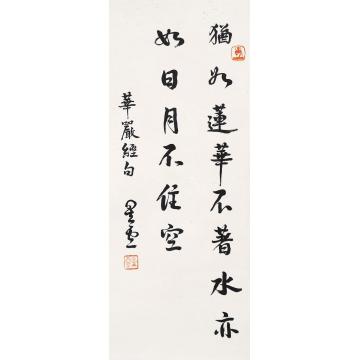 猶如蓮華不著水亦
如日月不住空
華嚴經句
星雲